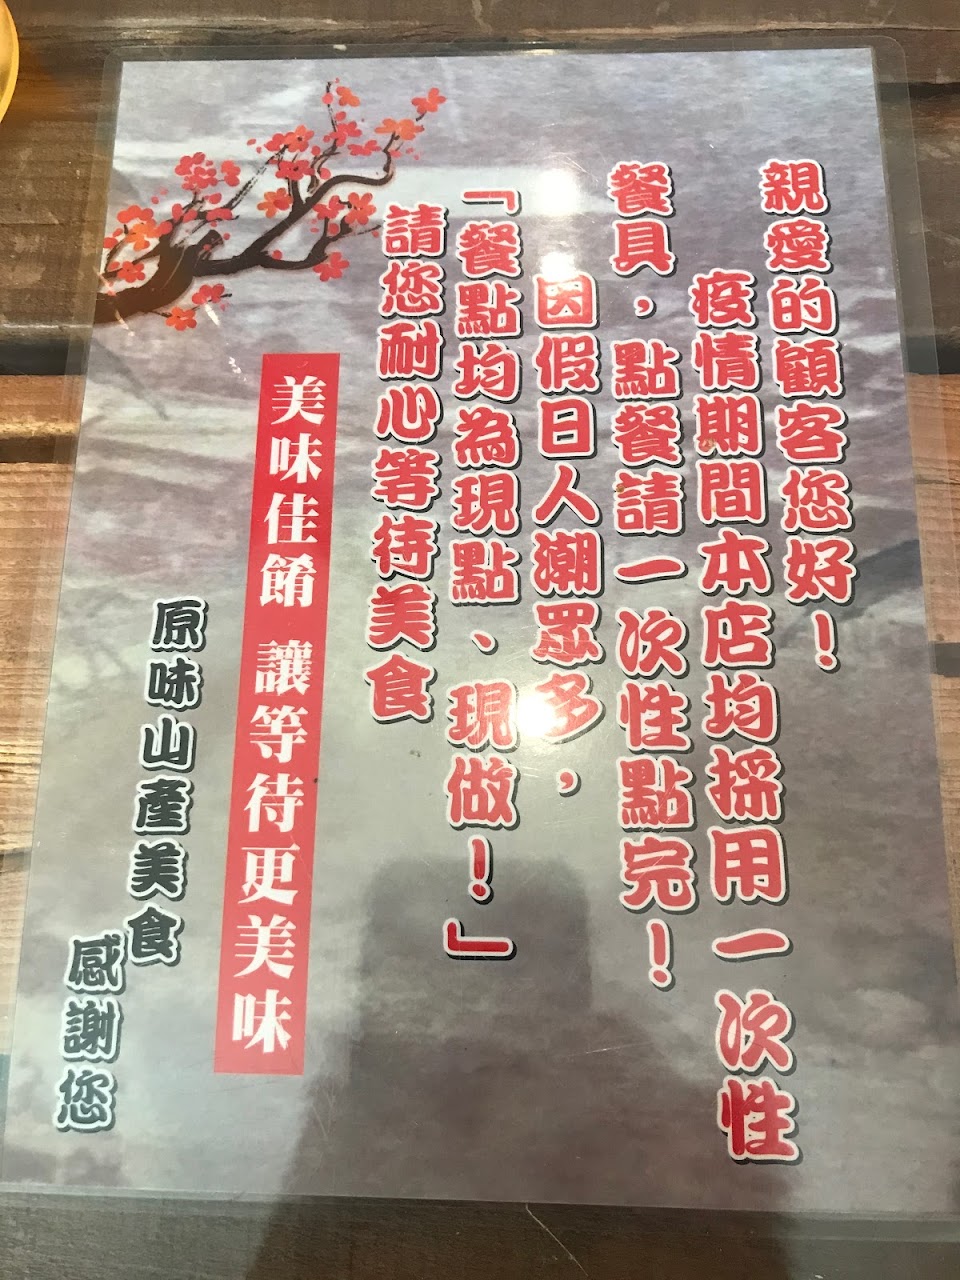 親愛的顧客您好！
疫情期間本店均採用一次性
餐具，點餐請一次性點完！
因假日人潮眾多，
「餐點均為現點、現做！」
請您耐心等待美食
美味佳餚 讓等待更美味
原味山產美食
感謝您